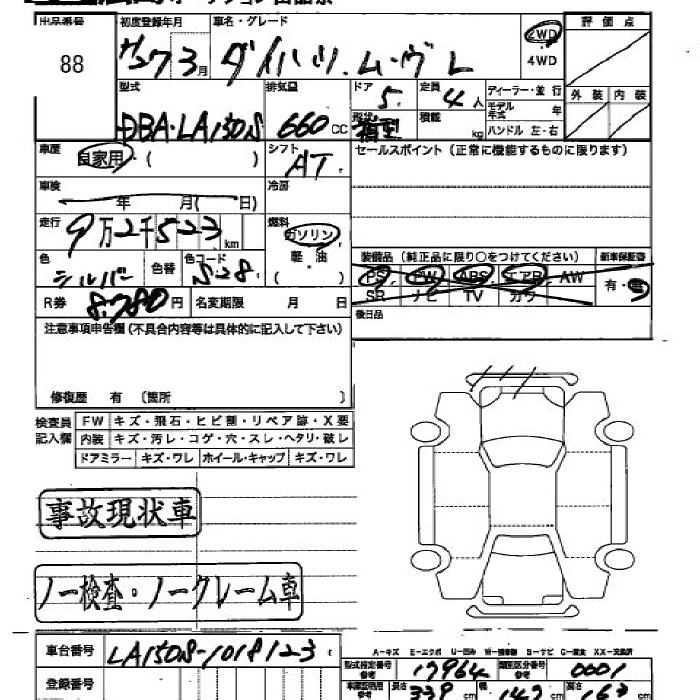 出品番号 初度登録年月 車名・グレード 評価点
88 27 3月 ダイハツ.ムーヴ L 2WD
4WD
型式 排気量 ドア 定員 ディーラー・並行 外装 内装
DBA-LA150S 660CC 5. 4人 モデル年式 年
形状 箱型 積載 kg ハンドル 左・右
車歴 自家用・( ) シフト AT. セールスポイント(正常に機能するものに限ります)
車検 年 月( 日) 冷房
走行 9万2千523km 燃料 ガソリン・
軽油
( )
色 シルバー 色替 色コード S28 装備品(純正品に限り○をつけてください) 新車保証書
PS PW ABS エアB AW 有・無
SR ナビ TV カワ
R券 8,780円 名変期限 月 日 後日品
注意事項申告欄(不具合内容等は具体的に記入して下さい)
修復歴 有 〔箇所 〕
検査員記入欄 FW キズ・飛石・ヒビ割・リペア跡・X要
内装 キズ・汚レ・コゲ・穴・スレ・ヘタリ・破レ
ドアミラー キズ・ワレ ホイール・キャップ キズ・ワレ
事故現状車
ノー検査・ノークレーム車
A-キズ E-エクボ U-凹み W-補修跡 S-サビ C-腐食 XX-交換済
車台番号 LA150S-1018123 型式指定番号 参考 17964 類別区分番号 参考 0001
登録番号 車庫証明用 参考 長さ 339cm 幅 147cm 高さ 163cm